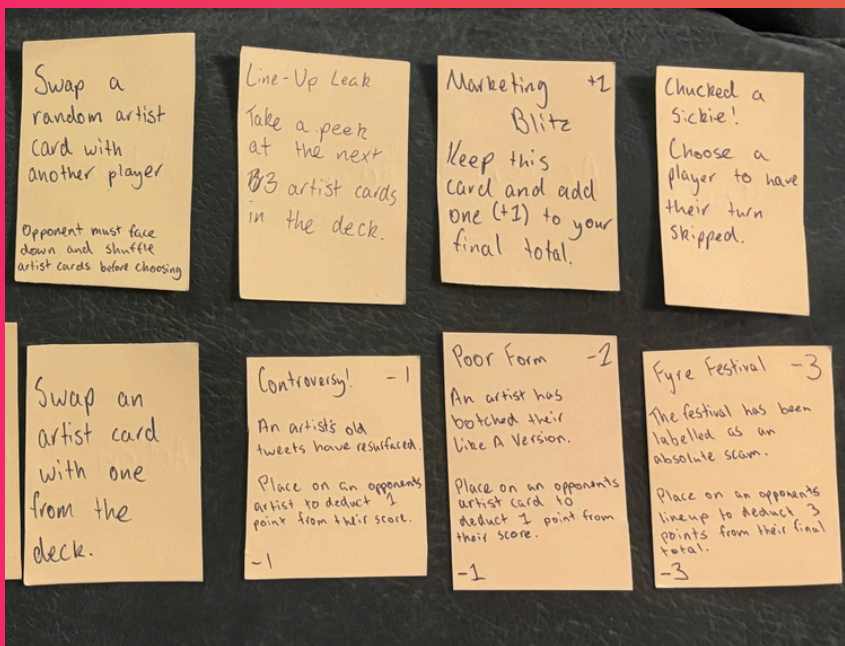 Swap a
random artist
card with
another player
Opponent must face
down and shuffle
artist cards before choosing
Line-Up Leak
Take a peek
at the next
3 artist cards
in the deck.
Marketing +1
Blitz
Keep this
card and add
one (+1) to your
final total.
Chucked a
sickie!
Choose a
player to have
their turn
skipped.
Swap an
artist card
with one
from the
deck.
Controversy! -1
An artist's old
tweets have resurfaced.
Place on an opponents
artist to deduct 1
point from their score.
-1
Poor Form -1
An artist has
botched their
Like A Version.
Place on an opponents
artist card to
deduct 1 point from
their score.
-1
Fyre Festival -3
The festival has been
labelled as an
absolute scam.
Place on an opponents
lineup to deduct 3
points from their final
total.
-3